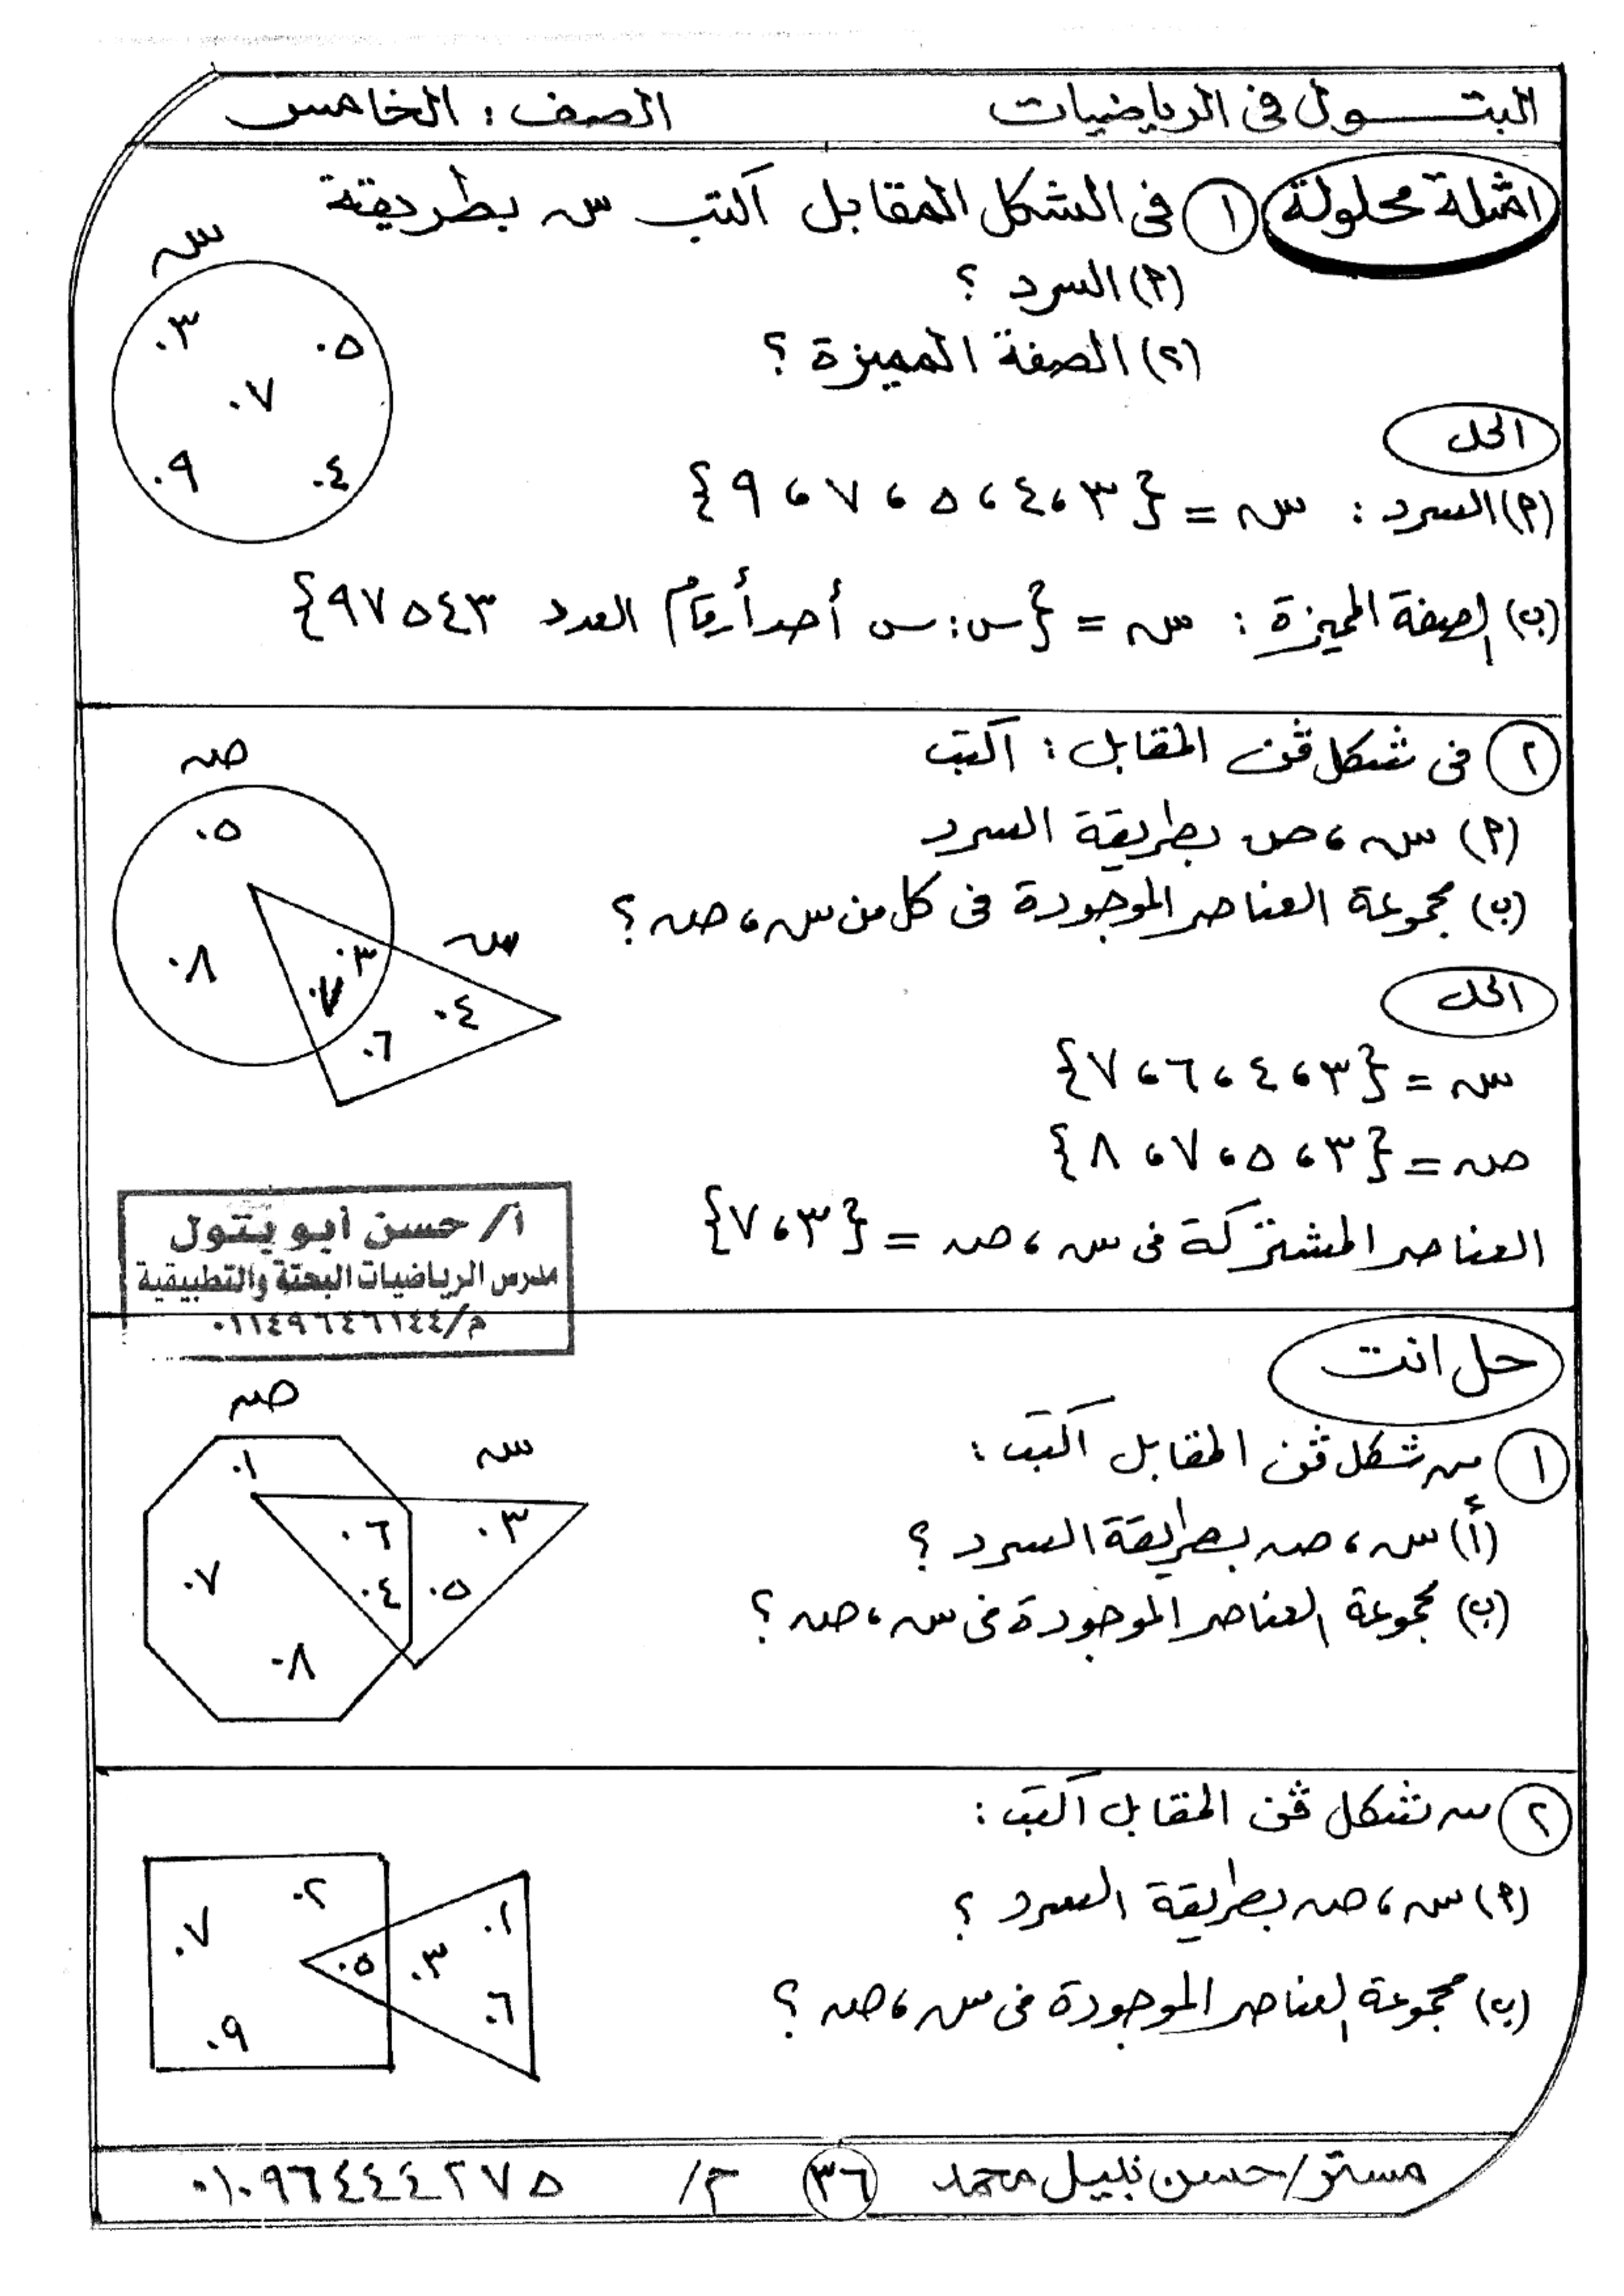 البتول فى الرياضيات
الصف : الخامس
أمثلة محلولة
١ فى الشكل المقابل أكتب س بطريقة
(٢) السرد ؟
(ب) الصفة المميزة ؟
س
٣.
.٥
.٧
.٩
.٤
الحل
(٢) السرد : س = {٣ ، ٤ ، ٥ ، ٧ ، ٩}
(ب) الصفة المميزة : س = {س : س أحد أرقام العدد ٩٧٥٤٣}
٢ فى شكل ڤن المقابل : اكتب
(٢) س ، ص بطريقة السرد
(ب) مجموعة العناصر الموجودة فى كل من س ، ص ؟
ص
.٥
.٨
.٣
.٧
س
.٤
.٦
الحل
س = {٣ ، ٤ ، ٦ ، ٧}
ص = {٣ ، ٥ ، ٧ ، ٨}
العناصر المشتركة فى س ، ص = {٣ ، ٧}
أ/ حسن أبو بتول
مدرس الرياضيات البحتة والتطبيقية
م/٠١١٤٩٦٤٦١٤٤
حل انت
١ من شكل ڤن المقابل اكتب :
(أ) س ، ص بطريقة السرد ؟
(ب) مجموعة العناصر الموجودة فى س ، ص ؟
ص
س
.١
.٦
.٣
.٧
.٤
.٥
.٨
٢ من شكل ڤن المقابل اكتب :
(٢) س ، ص بطريقة السرد ؟
(ب) مجموعة العناصر الموجودة فى س ، ص ؟
.٢
.٧
.١
.٥
.٣
.٦
.٩
مستر/ حسن نبيل محمد
٣٦
م/ ٠١٠٩٦٤٤٤٢٧٥